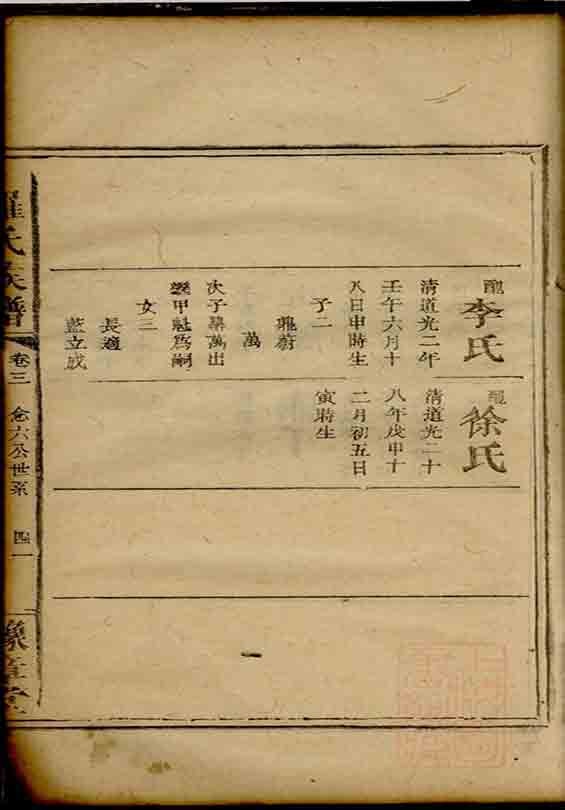 配
李氏
清道光二年
壬午六月十
八日申時生
子二
龍蔚
萬
次子㷼萬出
繼甲魁爲嗣
女二
長適
藍立成
配
徐氏
清道光二十
八年戊申十
二月初五日
寅時生
羅氏族譜
卷三
念六公世系
四一
豫章堂